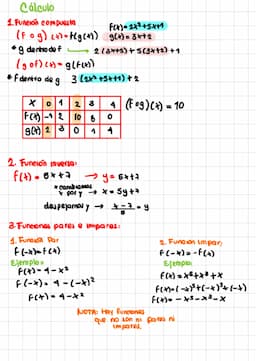 Cálculo
1. Función compuesta
f(x)=2x²+5x+1
(f o g)(x)=f(g(x))
g(x)=3x+2
*g dentro de f → 2(3x+2)+5(3x+2)+1
(g o f)(x)=g(f(x))
*f dentro de g 3(2x²+5x+1)+2
x 0 1 2 3 4
(f o g)(x)=10
f(x) -1 2 10 8 0
g(x) 2 3 0 1 4
2. Función inversa:
f(x)=5x+7 → y=5x+7
*cambiamos y por x → x=5y+7
despejamos y → x-7/5=y
3. Funciones pares e impares:
1. Función Par
f(-x)=f(x)
Ejemplo:
f(x)=4-x²
f(-x)=4-(-x)²
f(x)=4-x²
2. Función impar:
f(-x)=-f(x)
Ejemplo:
f(x)=x⁵+x³+x
f(x)=(-x)⁵+(-x)³+(-x)
f(x)=-x⁵-x³-x
NOTA: Hay funciones
que no son ni pares ni
impares.